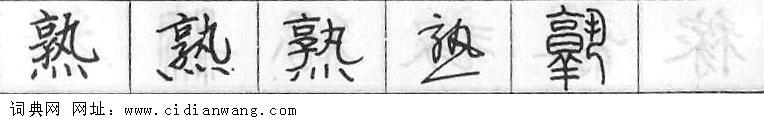 熟 熟 熟 熟 熟
词典网 网址：www.cidianwang.com